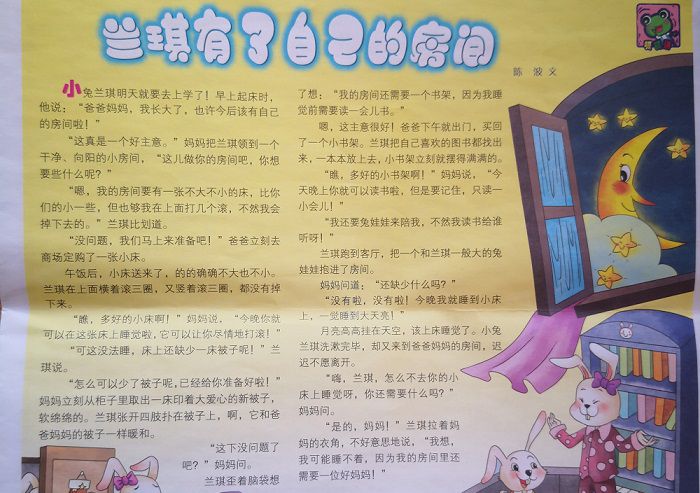 兰琪有了自己的房间
陈波文
小兔兰琪明天就要去上学了！早上起床时，
他说：“爸爸妈妈，我长大了，也许今后该有自己
的房间啦！”
“这真是一个好主意。”妈妈把兰琪领到一个
干净、向阳的小房间，“这儿做你的房间吧，你想
要些什么呢？”
“嗯，我的房间要有一张不大不小的床，比你
们的小一些，但也够我在上面打几个滚，不然我会
掉下去的。”兰琪比划道。
“没问题，我们马上来准备吧！”爸爸立刻去
商场定购了一张小床。
午饭后，小床送来了，的的确确不大也不小。
兰琪在上面横着滚三圈，又竖着滚三圈，都没有掉
下来。
“瞧，多好的小床啊！”妈妈说，“今晚你就
可以在这张床上睡觉啦，它可以让你尽情地打滚！”
“可这没法睡，床上还缺少一床被子呢！”兰
琪说。
“怎么可以少了被子呢，已经给你准备好啦！”
妈妈立刻从柜子里取出一床印着大爱心的新被子，
软绵绵的。兰琪张开四肢扑在被子上，啊，它和爸
爸妈妈的被子一样暖和。
“这下没问题了
吧？”妈妈问。
兰琪歪着脑袋想
了想：“我的房间还需要一个书架，因为我睡
觉前需要读一会儿书。”
嗯，这主意很好！爸爸下午就出门，买回
了一个小书架。兰琪把自己喜欢的图书都找出
来，一本本放上去，小书架立刻就摆得满满的。
“瞧，多好的小书架啊！”妈妈说，“今
天晚上你就可以读书啦，但是要记住，只读一
小会儿！”
“我还要兔娃娃来陪我，不然我读书给谁
听呀！”
兰琪跑到客厅，把一个和兰琪一般大的兔
娃娃抱进了房间。
妈妈问道：“还缺少什么吗？”
“没有啦，没有啦！今晚我就睡到小床
上，一觉睡到大天亮！”
月亮高高挂在天空，该上床睡觉了。小兔
兰琪洗漱完毕，却又来到爸爸妈妈的房间，迟
迟不愿离开。
“嗨，兰琪，怎么不去你的小
床上睡觉呀，你还需要什么吗？”
妈妈问。
“是的，妈妈！”兰琪拉着妈
妈的衣角，不好意思地说，“我想，
我可能睡不着，因为我的房间里还
需要一位好妈妈！”